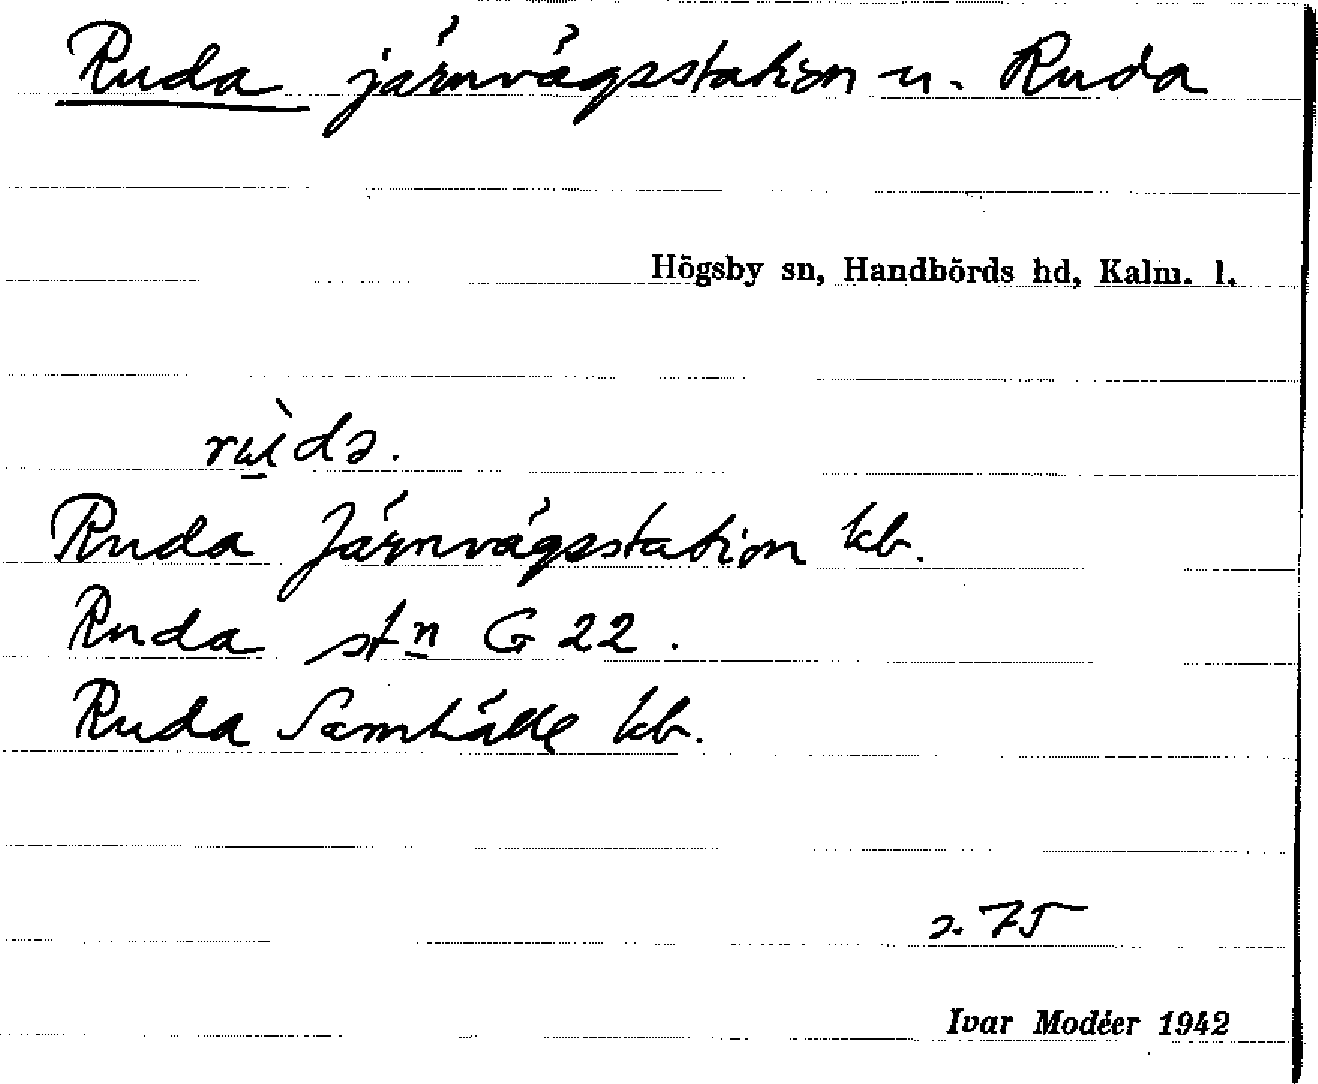 Ruda järnvägsstation u. Ruda
Högsby sn, Handbörds hd, Kalm. l.
Ruda Järnvägsstation kb.
Ruda stn G 22.
Ruda Samhälle kb.
s. 75
Ivar Modéer 1942